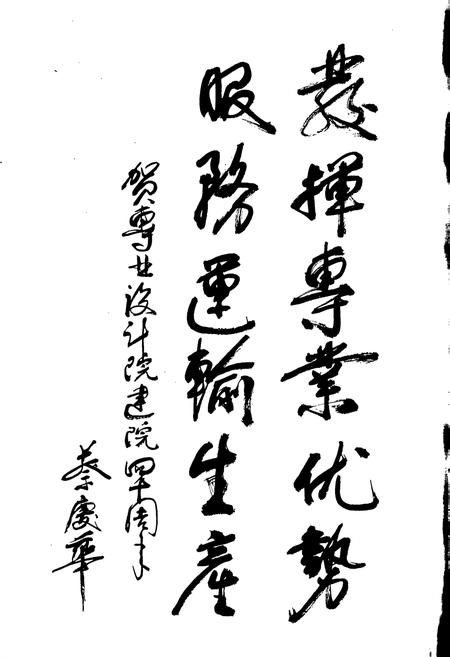 發揮專業优勢
服務運輸生產
賀專业设计院建院四十周年
蔡慶華